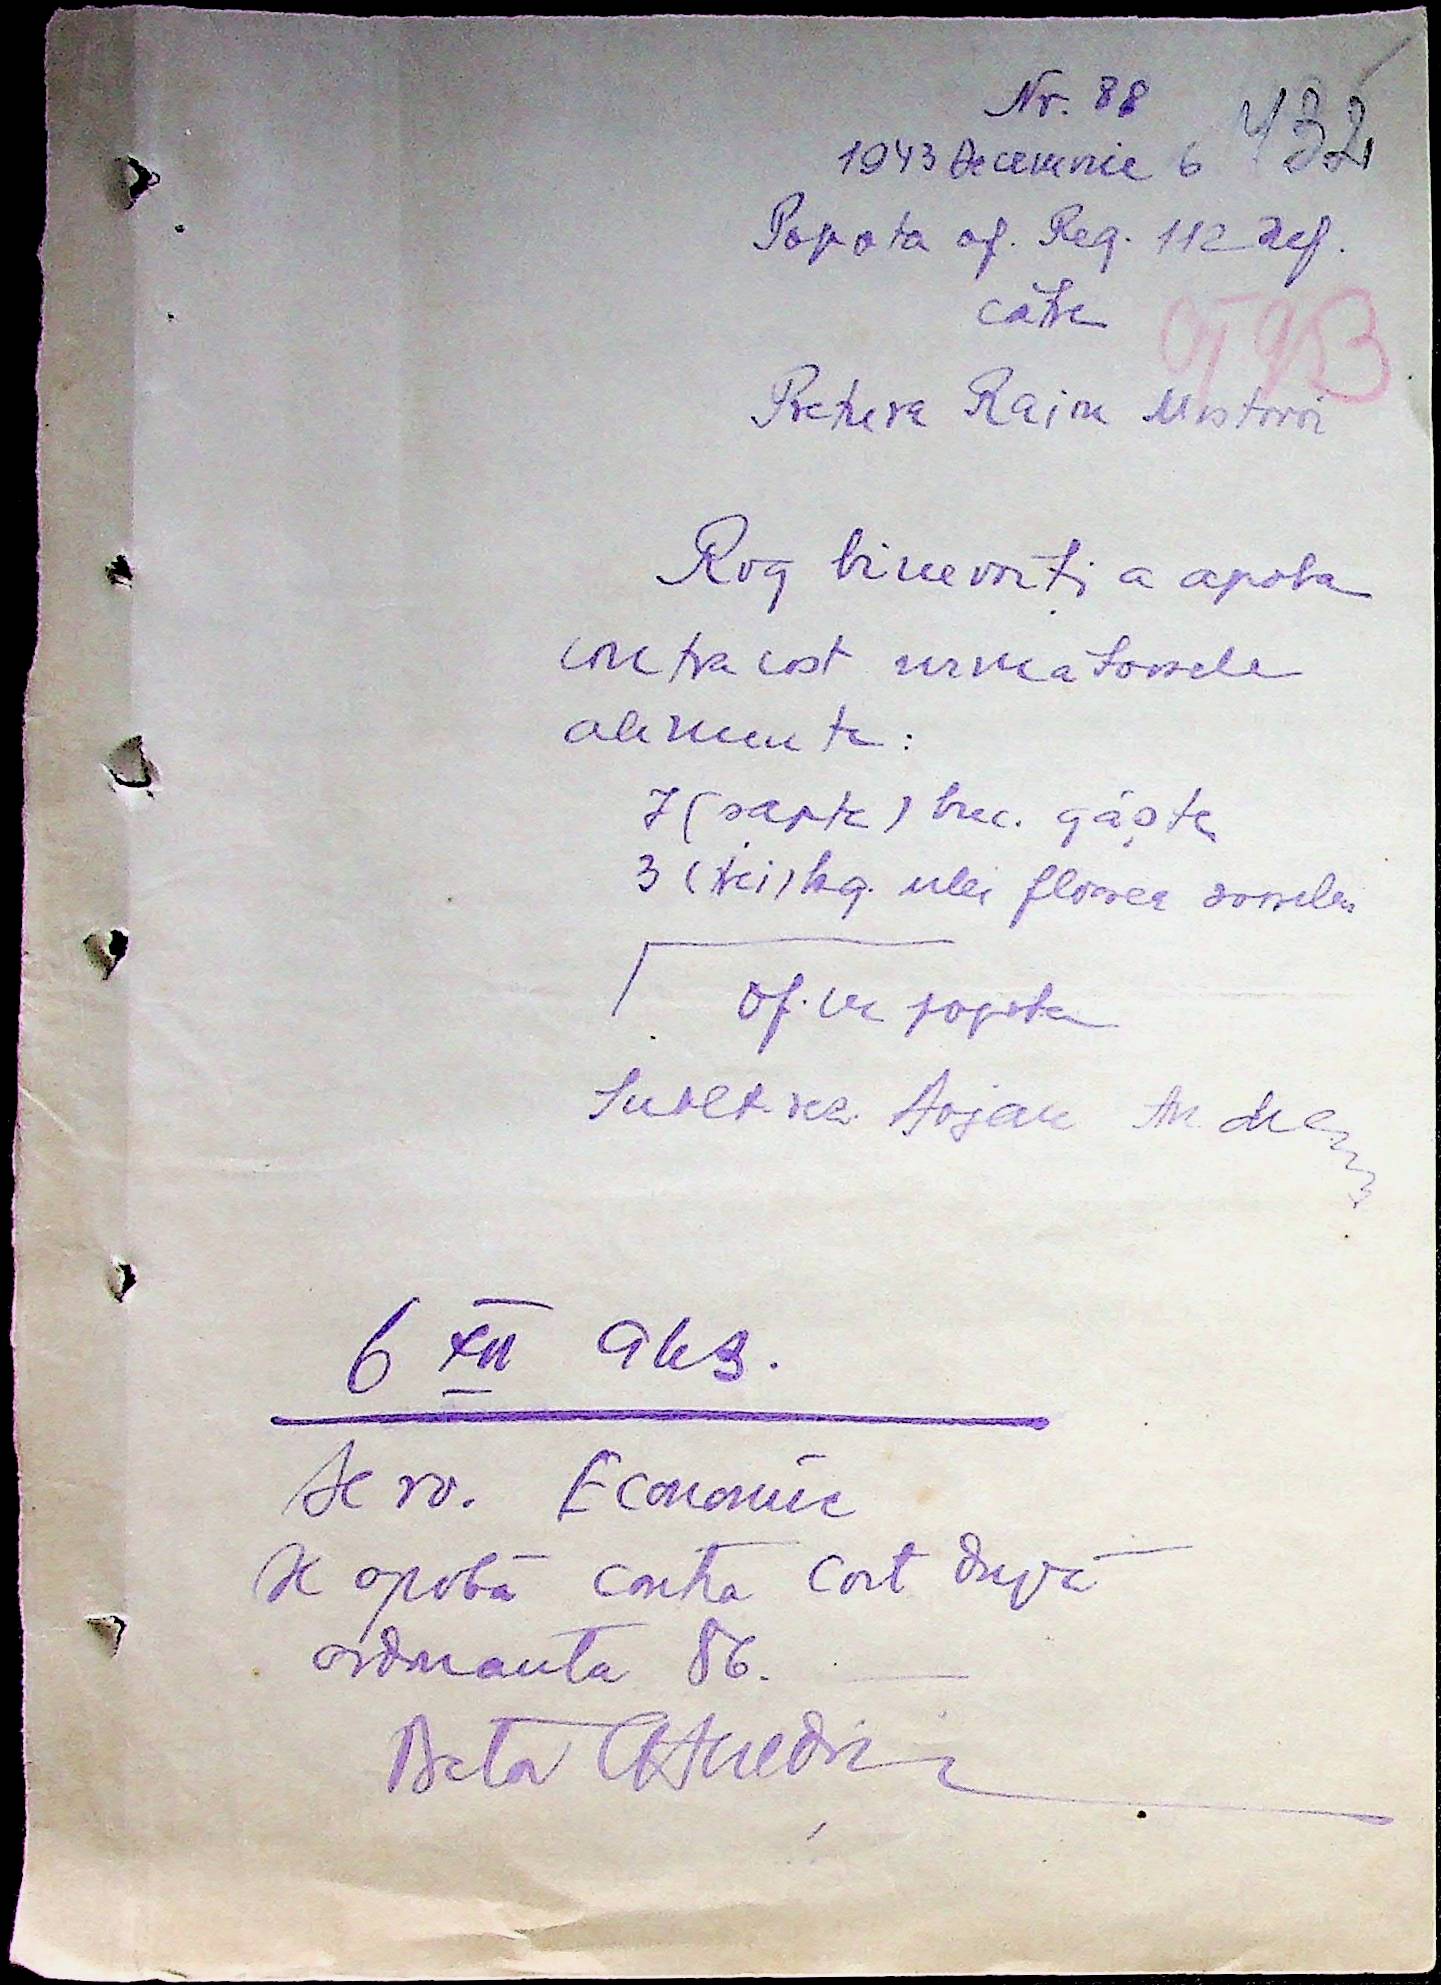 Nr. 88
432
1943 Decemvrie 6
Popota of. Reg. 112
către
Pretura Raion Mostovoi
Rog binevoiți a aproba
contra cost urmatoarele
alimente:
7 (șapte) buc. gâște
3 (trei) kg. ulei floarea soarelui
Of. cu popota
Sublt. rez. Andrei
6 XII 943.
Serv. Economic
Se aprobă contra cost după
ordonanta 86.